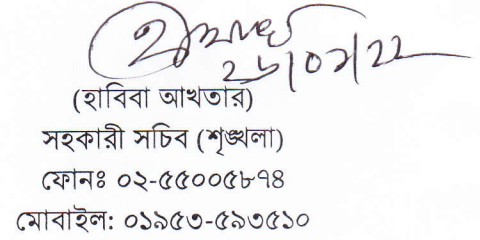 ২৬/০২/২২
(হাবিবা আখতার)
সহকারী সচিব (শৃঙ্খলা)
ফোনঃ ০২-৫৫০০৫৮৭৪
মোবাইল: ০১৯৫৩-৫৯৩৫১০